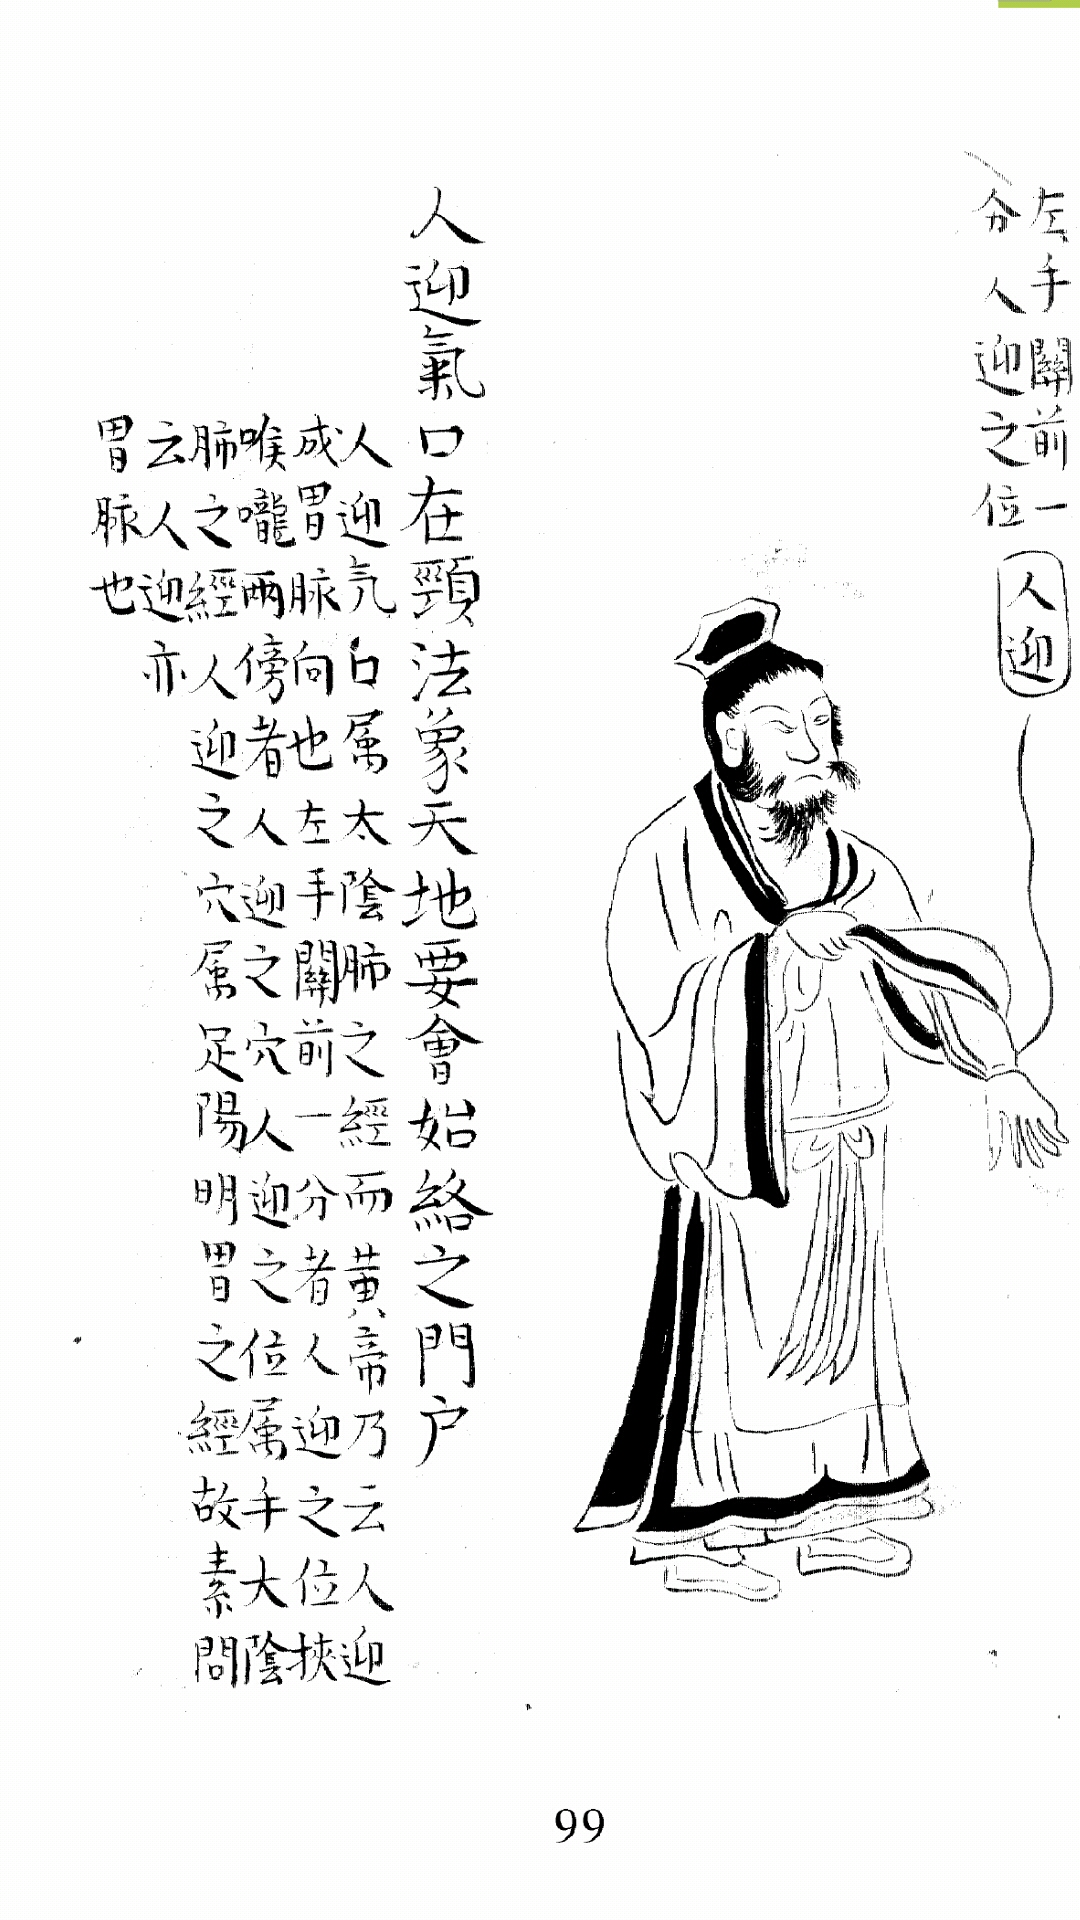 左手關前一
分人迎之位
人迎
人迎氣口在頸法象天地要會始絡之門户
人迎氕口属太陰肺之經而黄帝乃云人迎
成胃脉向也左手關前一分者人迎之位挾
喉嚨兩傍者人迎之穴人迎之位属手大陰
肺之經人迎之穴属足陽明胃之經故素問
云人迎亦
胃脉也
99